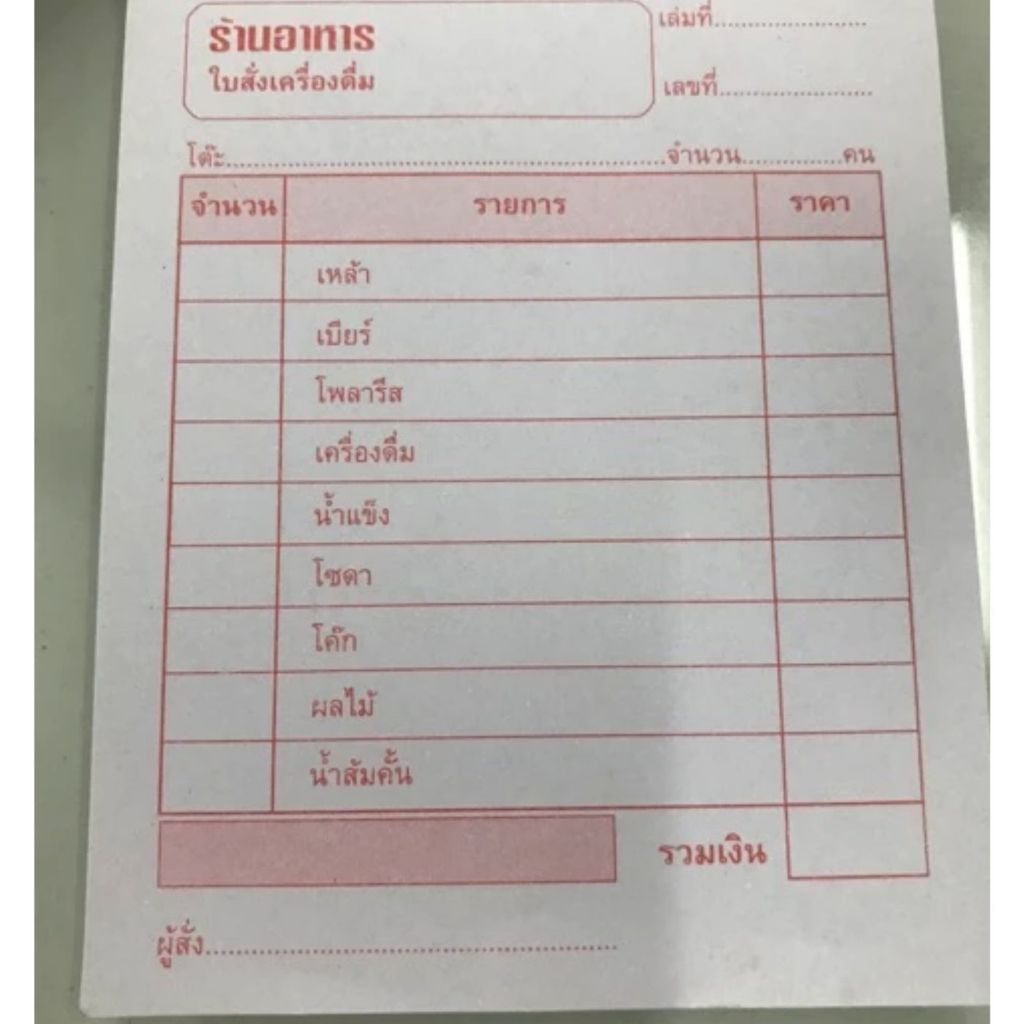 ร้านอาหาร
ใบสั่งเครื่องดื่ม
เล่มที่......................
เลขที่......................
โต๊ะ..............................................................จำนวน..............คน
จำนวน รายการ ราคา
เหล้า
เบียร์
โพลารีส
เครื่องดื่ม
น้ำแข็ง
โซดา
โค๊ก
ผลไม้
น้ำส้มคั้น
รวมเงิน
ผู้สั่ง............................................................